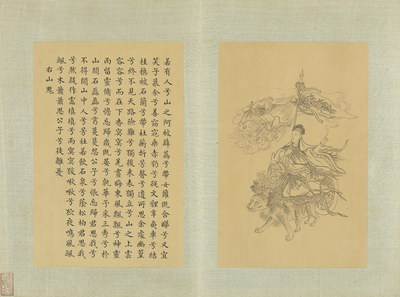 若有人兮山之阿被薜荔兮帶女蘿既含睇兮又宜
笑子慕余兮善窈窕乘赤豹兮從文貍辛夷車兮結
桂旗被石蘭兮帶杜衡折芳馨兮遺所思余處幽篁
兮終不見天路險難兮獨後來表獨立兮山之上雲
容容兮而在下杳冥冥兮羌晝晦東風飄飄兮神靈
雨留靈脩兮憺忘歸歲既晏兮孰華予采三秀兮於
山間石磊磊兮葛蔓蔓怨公子兮悵忘歸君思我兮
不得閒山中人兮芳杜若飲石泉兮蔭松柏君思我
兮然疑作靁填填兮雨冥冥猨啾啾兮狖夜鳴風颯
颯兮木蕭蕭思公子兮徒離憂
右山鬼